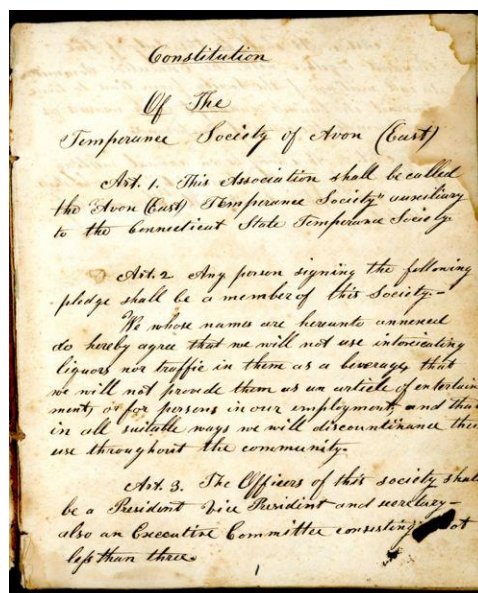 Constitution
Of The
Temperance Society of Avon (East)
Art. 1. This Association shall be called
the "Avon (East) Temperance Society" auxiliary
to the Connecticut State Temperance Society.
Art. 2 Any person signing the following
pledge shall be a member of this Society.-
We whose names are hereunto annexed
do hereby agree that we will not use intoxicating
liquors nor traffic in them as a beverage, that
we will not provide them as an article of entertain
ment, or for persons in our employment, and that
in all suitable ways we will discountinance their
use throughout the community.-
Art. 3. The Officers of this society shall
be a President Vice President and secretary-
also an Executive Committee consisting not
less than three.
1